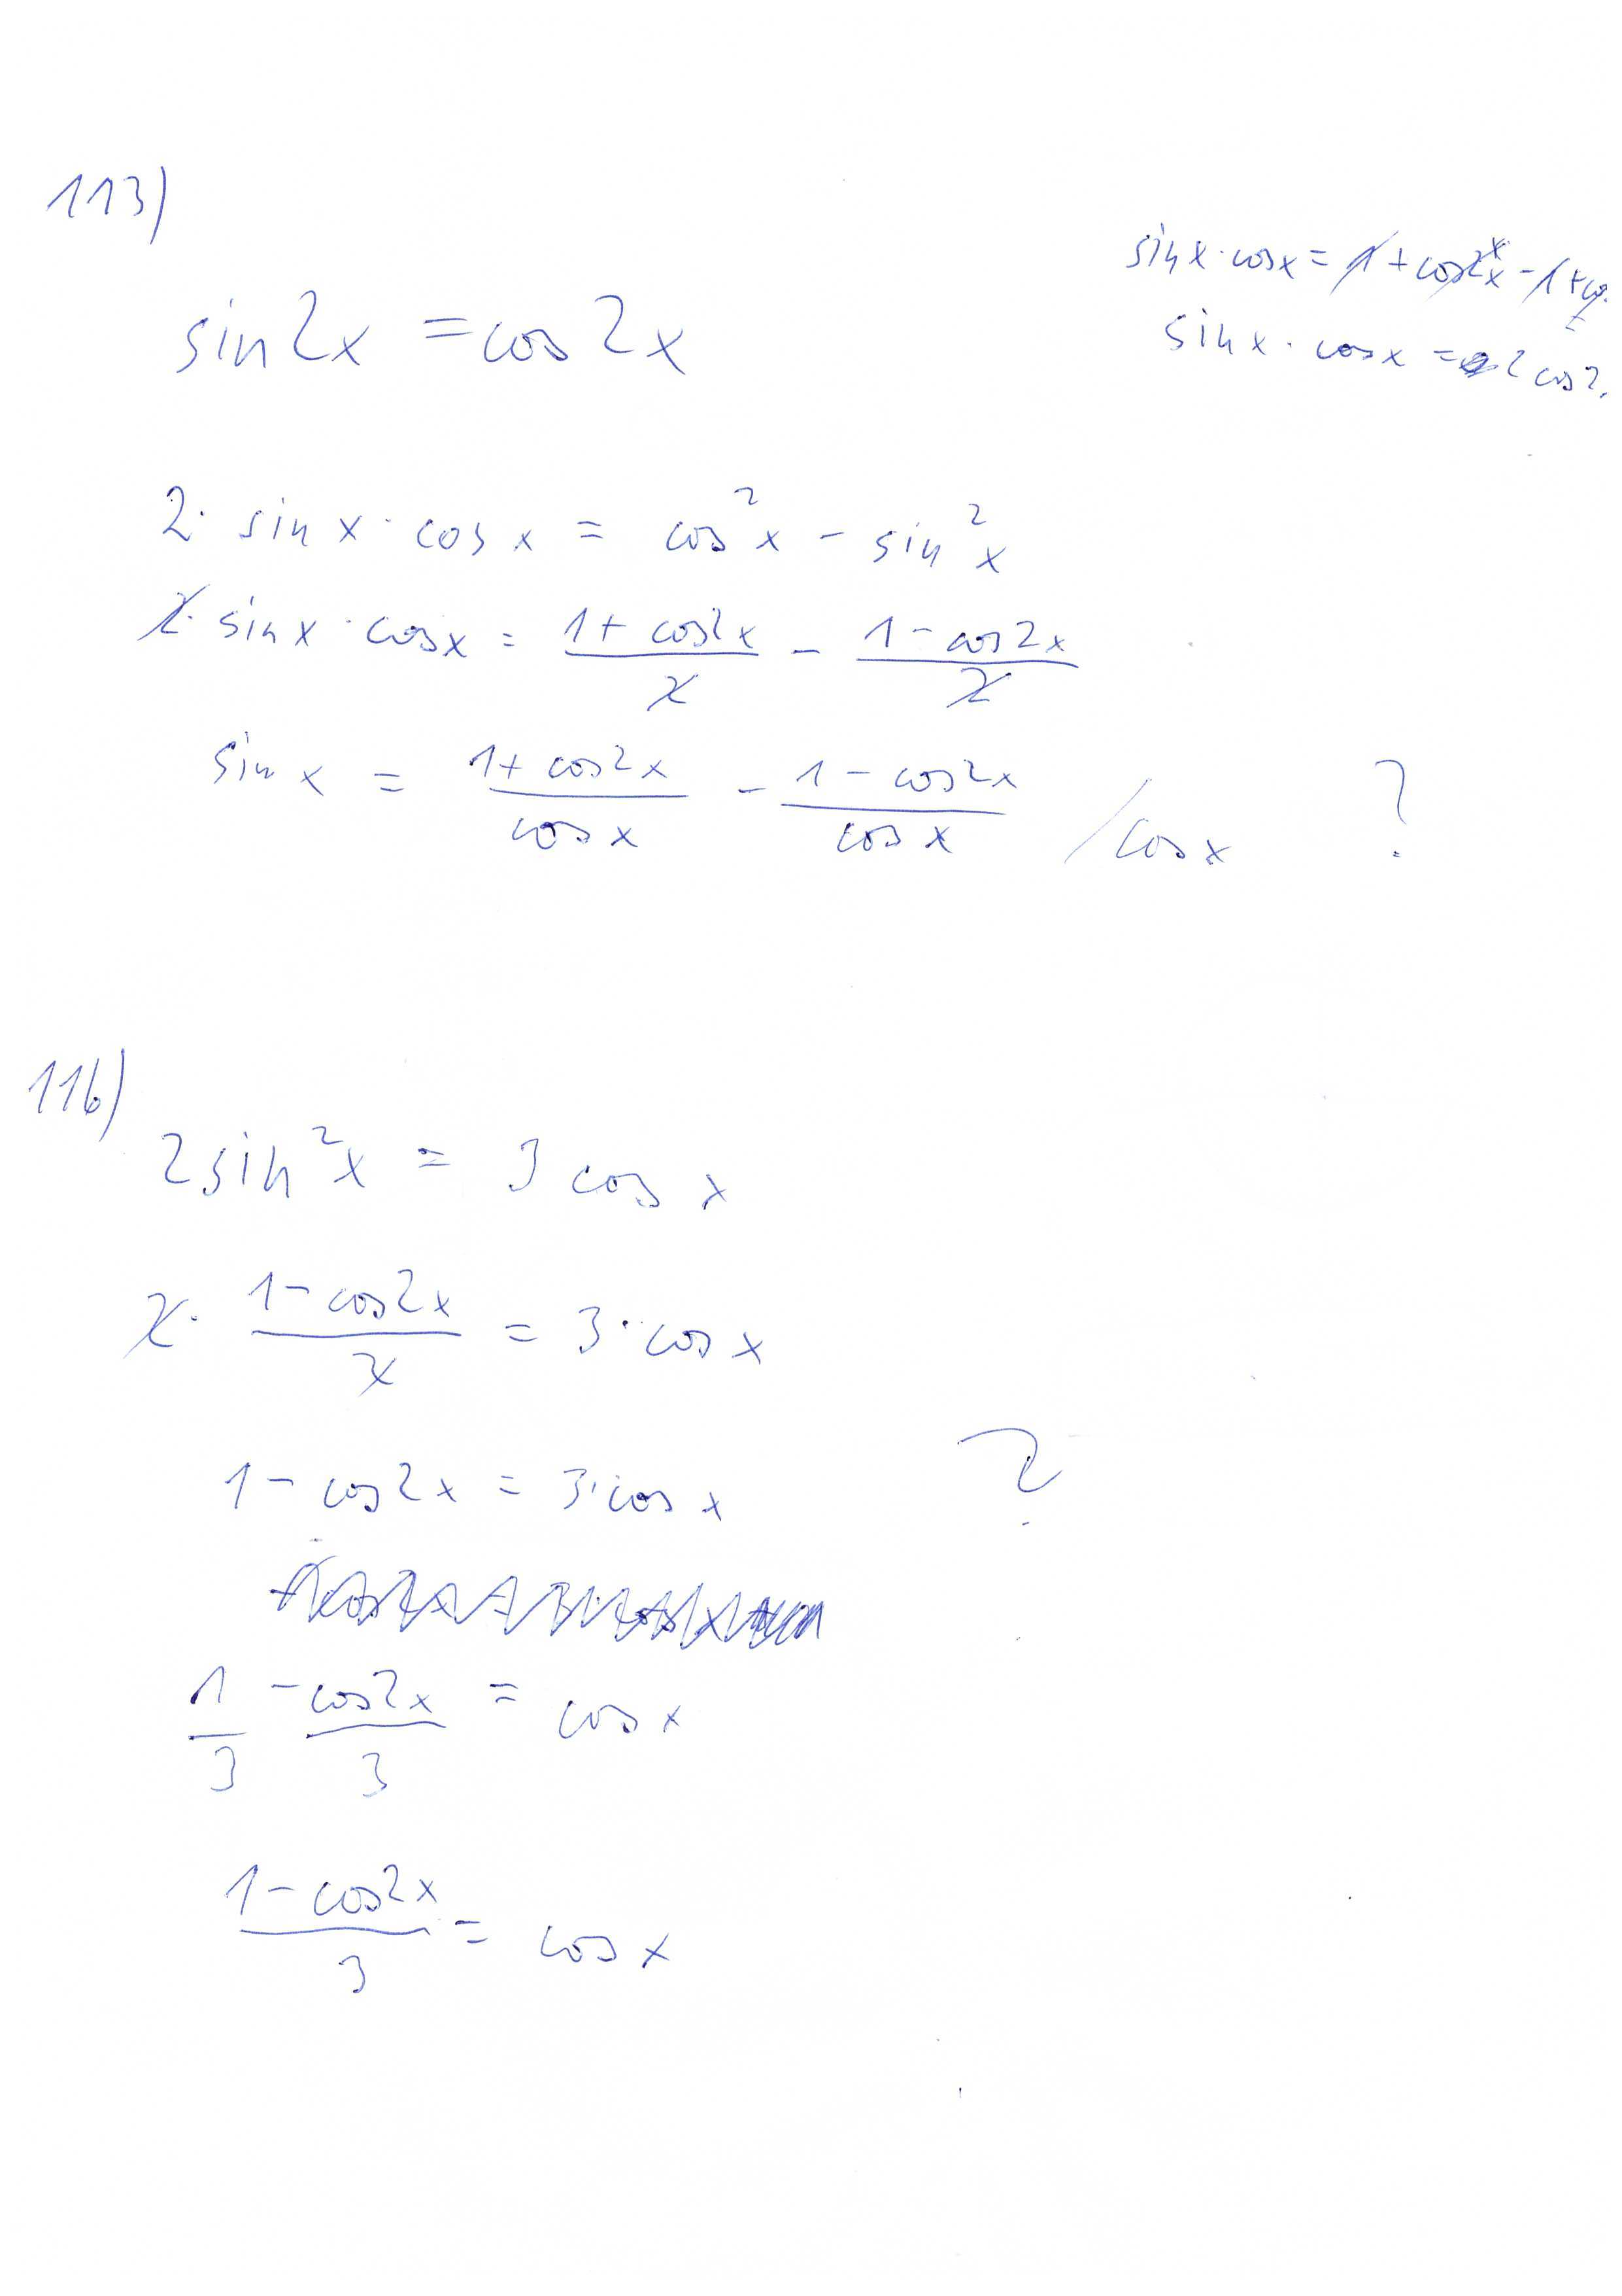 113)
sin x · cos x = 1 + cos2x - 1 + co
sin x · cos x = 2 cos2
sin 2x = cos 2x
2 · sin x · cos x = cos²x - sin²x
2 · sin x · cos x = (1 + cos2x)/2 - (1 - cos2x)/2
sin x = (1 + cos2x)/(cos x) - (1 - cos2x)/(cos x) / cos x ?
116)
2 sin²x = 3 cos x
2 · (1 - cos2x)/2 = 3 · cos x
1 - cos2x = 3 · cos x ?
1/3 - cos2x/3 = cos x
(1 - cos2x)/3 = cos x